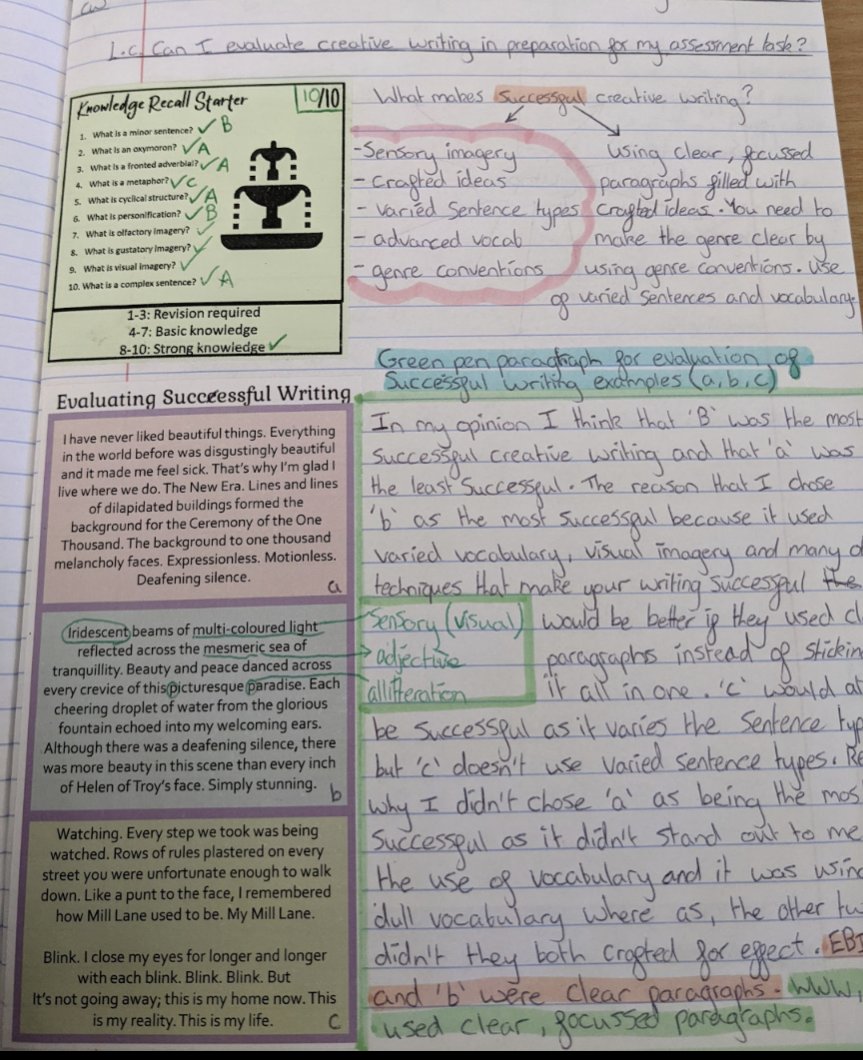 1.c Can I evaluate creative writing in preparation for my assessment task?
Knowledge Recall Starter
10/10
1. What is a minor sentence? ✓ B
2. What is an oxymoron? ✓ A
3. What is a fronted adverbial? ✓ A
4. What is a metaphor? ✓ C
5. What is cyclical structure? ✓ A
6. What is personification? ✓ B
7. What is olfactory imagery? ✓
8. What is gustatory imagery? ✓
9. What is visual imagery? ✓
10. What is a complex sentence? ✓ A
1-3: Revision required
4-7: Basic knowledge
8-10: Strong knowledge ✓
What makes successful creative writing?
- Sensory imagery
- crafted ideas
- varied sentence types
- advanced vocab
- genre conventions
using clear, focussed
paragraphs filled with
crafted ideas. You need to
make the genre clear by
using genre conventions. Use
of varied sentences and vocabulary.
Evaluating Successful Writing
I have never liked beautiful things. Everything
in the world before was disgustingly beautiful
and it made me feel sick. That's why I'm glad I
live where we do. The New Era. Lines and lines
of dilapidated buildings formed the
background for the Ceremony of the One
Thousand. The background to one thousand
melancholy faces. Expressionless. Motionless.
Deafening silence.
a
Iridescent beams of multi-coloured light
reflected across the mesmeric sea of
tranquillity. Beauty and peace danced across
every crevice of this picturesque paradise. Each
cheering droplet of water from the glorious
fountain echoed into my welcoming ears.
Although there was a deafening silence, there
was more beauty in this scene than every inch
of Helen of Troy's face. Simply stunning.
b
Watching. Every step we took was being
watched. Rows of rules plastered on every
street you were unfortunate enough to walk
down. Like a punt to the face, I remembered
how Mill Lane used to be. My Mill Lane.
Blink. I close my eyes for longer and longer
with each blink. Blink. Blink. But
It's not going away; this is my home now. This
is my reality. This is my life.
C
Green pen paragraph for evaluation of
Successful writing examples (a,b,c)
In my opinion I think that 'B' was the most
successful creative writing and that 'a' was
the least successful. The reason that I chose
'b' as the most successful because it used
varied vocabulary, visual imagery and many
techniques that make your writing successful the
sensory (visual)
adjective
alliteration
would be better if they used
paragraphs instead of
it all in one. 'c' would
be successful as it varies the sentence
but 'c' doesn't use varied sentence types.
why I didn't chose 'a' as being the
successful as it didn't stand out to me
the use of vocabulary and it was
dull vocabulary where as, the other
didn't they both crafted for effect. EBI
and 'b' were clear paragraphs. WWW,
used clear, focussed paragraphs.